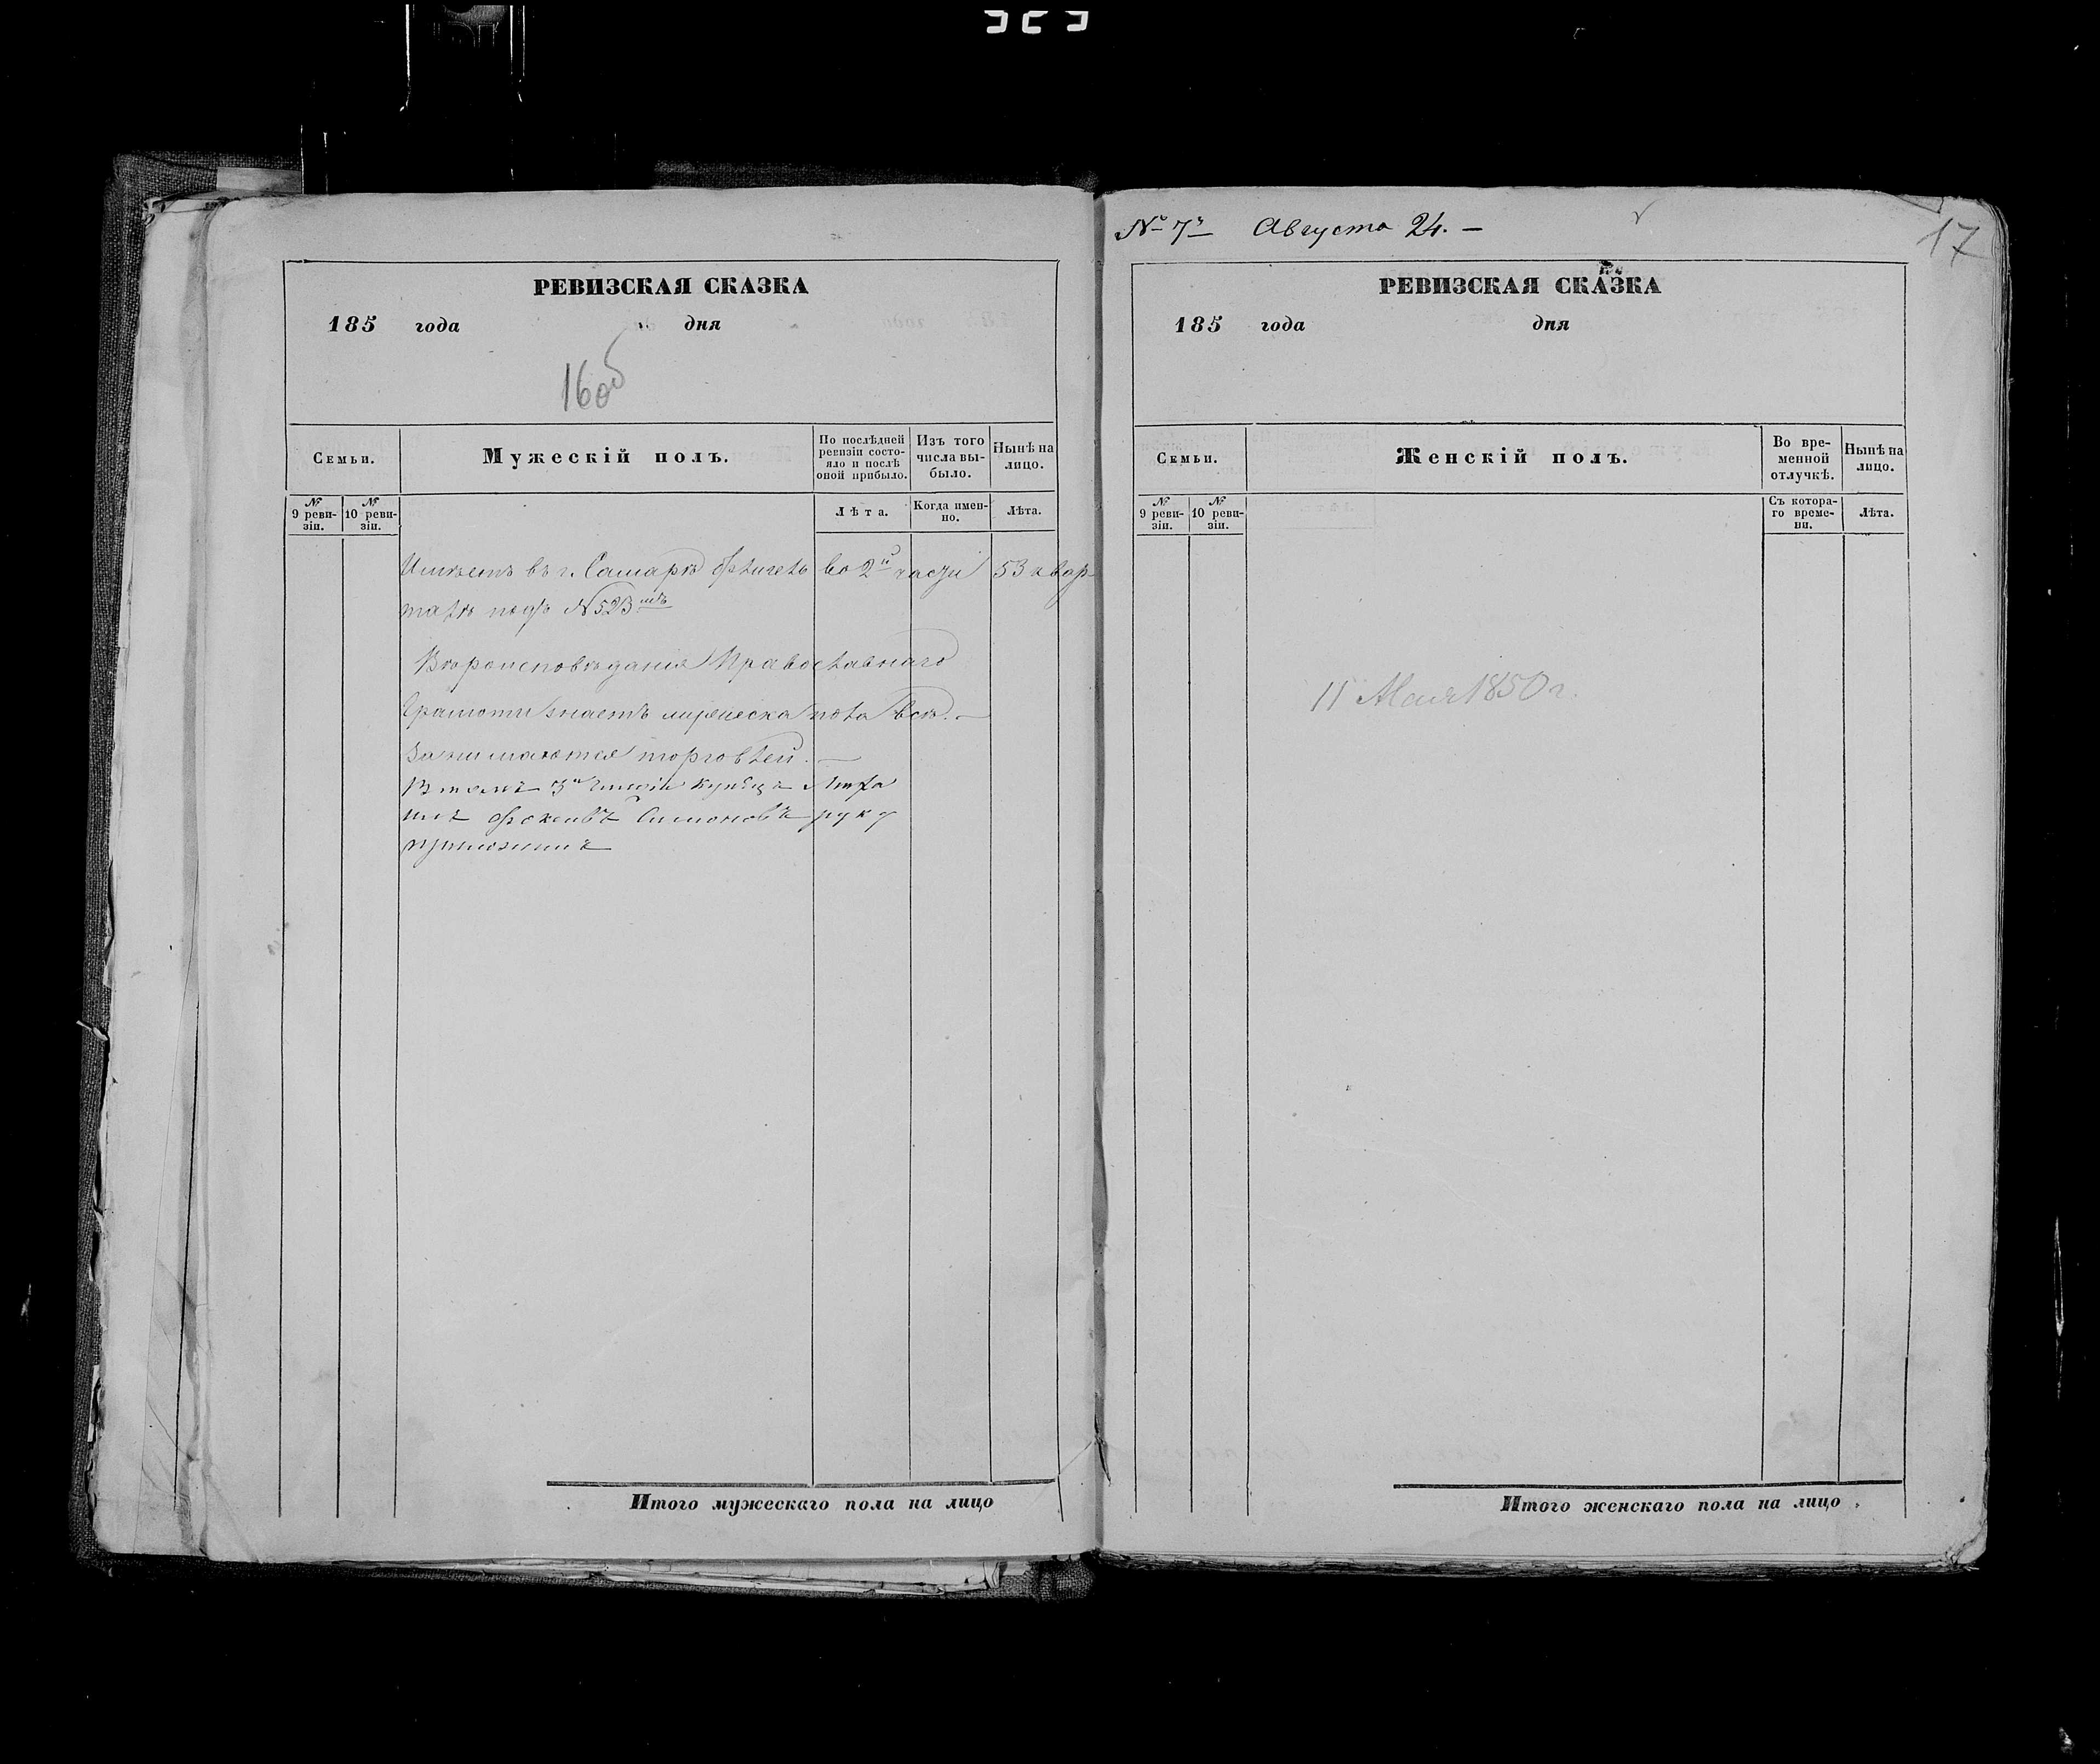 РЕВИЗСКАЯ СКАЗКА
185 года дня
16об
Семьи.
Мужескій полъ.
По послѣдней ревизіи состояло и послѣ оной прибыло.
Изъ того числа выбыло.
Нынѣ на лицо.
№ 9 ревизіи.
№ 10 ревизіи.
Лѣта.
Когда именно.
Лѣта.
Имѣетъ въ г. Самарѣ во 2й части 53 квар-
талѣ подъ № 523мъ
Вѣроисповѣданія Православнаго
Грамоти знаетъ мужеска пола всѣ. —
Занимаются торговлей. —
Въ томъ 3й гильдіи купецъ
Симоновъ руку
приложилъ
Итого мужескаго пола на лицо
№ 7й Августа 24. —
17
РЕВИЗСКАЯ СКАЗКА
185 года дня
Семьи.
Женскій полъ.
Во временной отлучкѣ.
Нынѣ на лицо.
№ 9 ревизіи.
№ 10 ревизіи.
Съ котораго времени.
Лѣта.
11 Мая 1850 г.
Итого женскаго пола на лицо